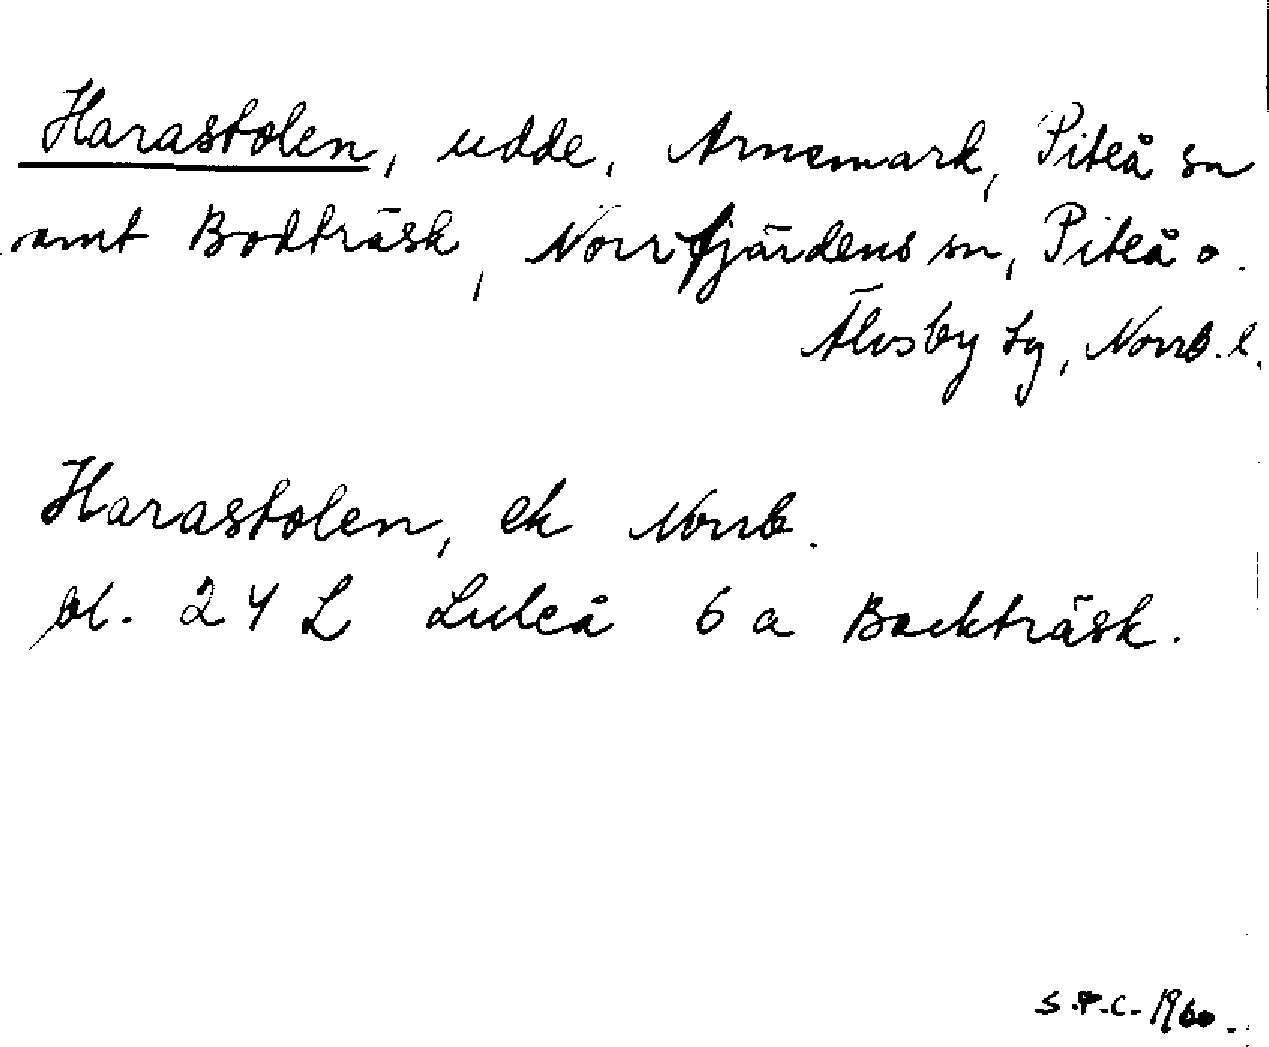 Harastolen, udde, Arnemark, Piteå sn
samt Bodträsk, Norrfjärdens sn, Piteå o.
Älvsby tg, Norrb. l.
Harastolen, ek Norrb.
bl. 24 L Luleå 6 a Backträsk.
S.P.C. 1960.